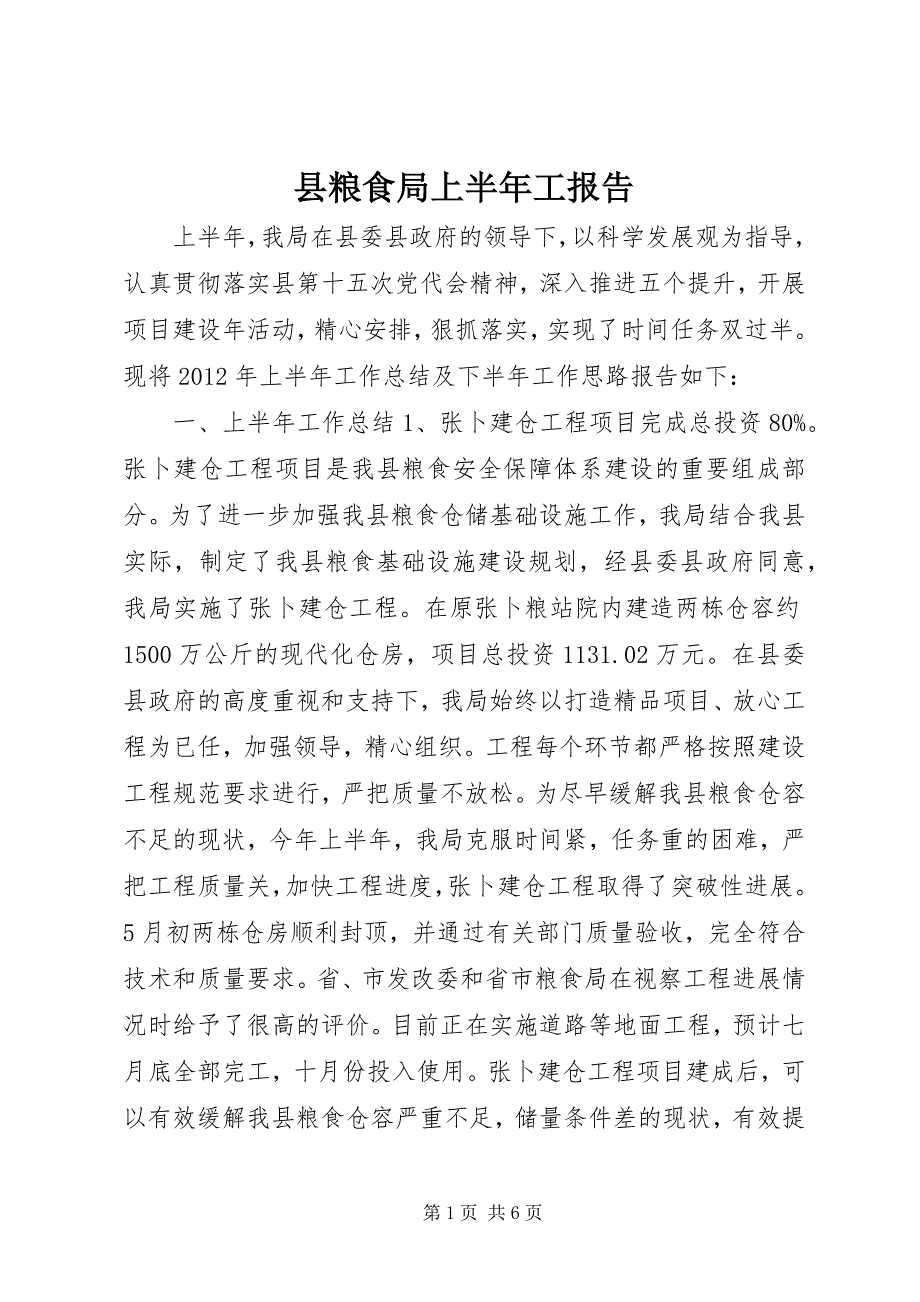 县粮食局上半年工报告
上半年,我局在县委县政府的领导下,以科学发展观为指导,
认真贯彻落实县第十五次党代会精神，深入推进五个提升，开展
项目建设年活动，精心安排，狠抓落实，实现了时间任务双过半。
现将 2012 年上半年工作总结及下半年工作思路报告如下：
一、上半年工作总结 1、张卜建仓工程项目完成总投资 80%。
张卜建仓工程项目是我县粮食安全保障体系建设的重要组成部
分。为了进一步加强我县粮食仓储基础设施工作，我局结合我县
实际，制定了我县粮食基础设施建设规划，经县委县政府同意，
我局实施了张卜建仓工程。在原张卜粮站院内建造两栋仓容约
1500 万公斤的现代化仓房，项目总投资 1131.02 万元。在县委
县政府的高度重视和支持下，我局始终以打造精品项目、放心工
程为已任，加强领导，精心组织。工程每个环节都严格按照建设
工程规范要求进行，严把质量不放松。为尽早缓解我县粮食仓容
不足的现状，今年上半年，我局克服时间紧，任务重的困难，严
把工程质量关，加快工程进度，张卜建仓工程取得了突破性进展。
5 月初两栋仓房顺利封顶，并通过有关部门质量验收，完全符合
技术和质量要求。省、市发改委和省市粮食局在视察工程进展情
况时给予了很高的评价。目前正在实施道路等地面工程，预计七
月底全部完工，十月份投入使用。张卜建仓工程项目建成后，可
以有效缓解我县粮食仓容严重不足，储量条件差的现状，有效提
第 1 页 共 6 页